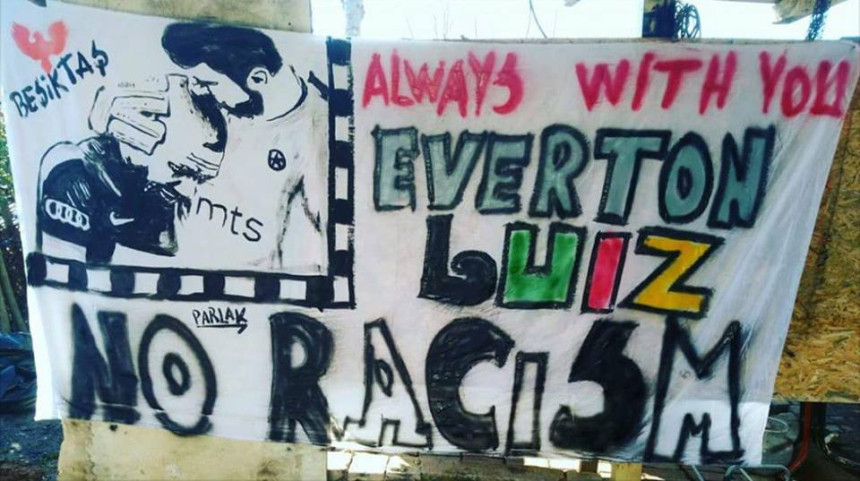 BEŞİKTAŞ
mts
PARLAK
ALWAYS WITH YOU
EVERTON
LUIZ
NO RACiSM